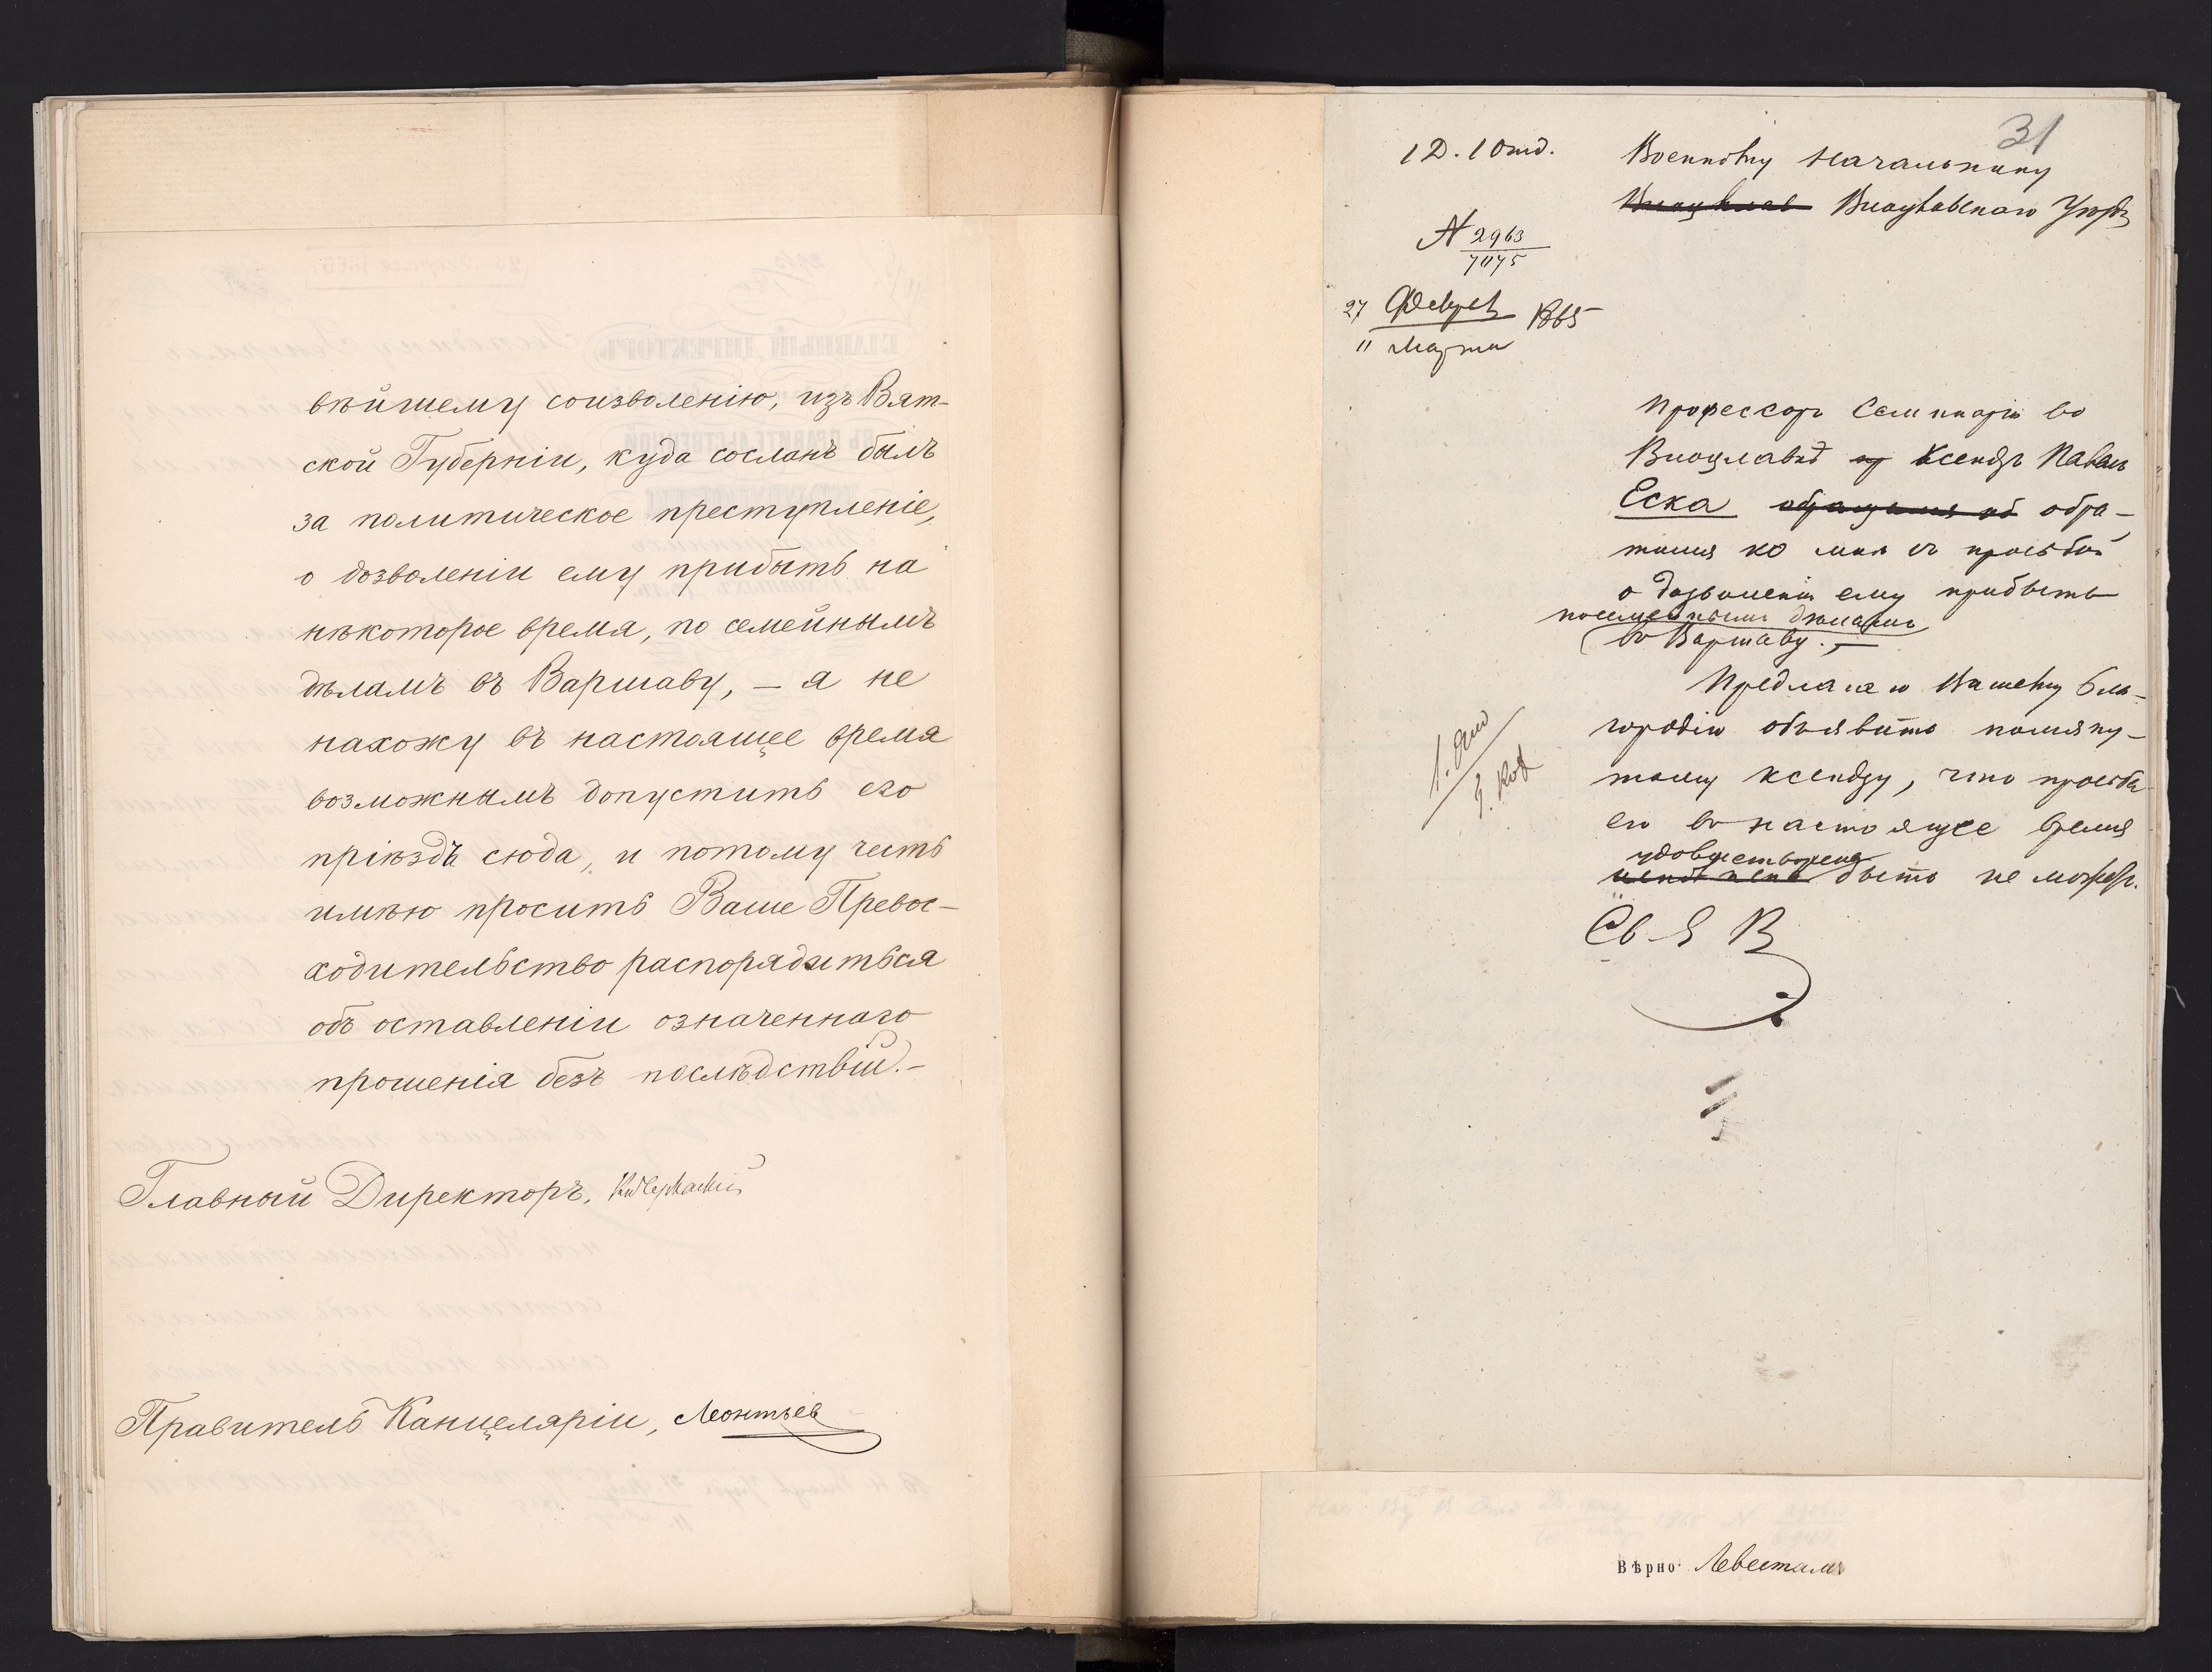 вѣйшему соизволенію, изъ Вят-
ской Губерніи, куда сосланъ былъ
за политическое преступленіе,
о дозволеніи ему прибыть на
нѣкоторое время, по семейнымъ
дѣламъ въ Варшаву, — я не
нахожу въ настоящее время
возможнымъ допустить его
пріѣздъ сюда, и потому честь
имѣю просить Ваше Превос-
ходительство распорядиться
объ оставленіи означеннаго
прошенія безъ послѣдствій.—
Главный Директоръ,
Правитель Канцеляріи, Леонтьев
31
1 Д. 1 Отд.
Военному Начальнику
Влоцлавскаго Уѣзда
N 2963
7075
27 Февр 1865
11 Марта
Профессоръ Семинаріи во
Влоцлавкѣ Ксендзъ Павелъ
Еска обра-
тился ко мнѣ съ просьбой
о дозволеніи ему прибыть
по семейнымъ дѣламъ
въ Варшаву.—
Предлагаю Вашему Бла-
городію объявить помяну-
тому ксендзу, что просьба
его въ настоящее время
удовлетворена
быть не можетъ.
Вѣрно: Левестамъ